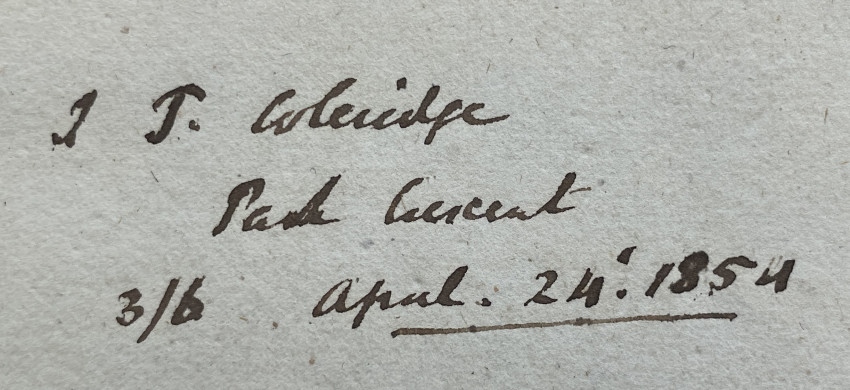 J T. Coleridge
Park Crescent
3/6 April. 24. 1854